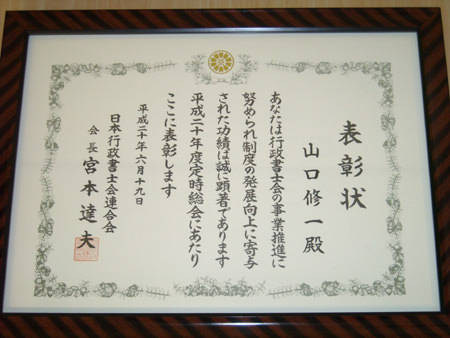 表彰状
山口修一殿
あなたは行政書士会の事業推進に
努められ制度の発展向上に寄与
された功績は誠に顕著であります
平成二十年度定時総会にあたり
ここに表彰します
平成二十年六月十九日
日本行政書士会連合会
会長 宮本達夫